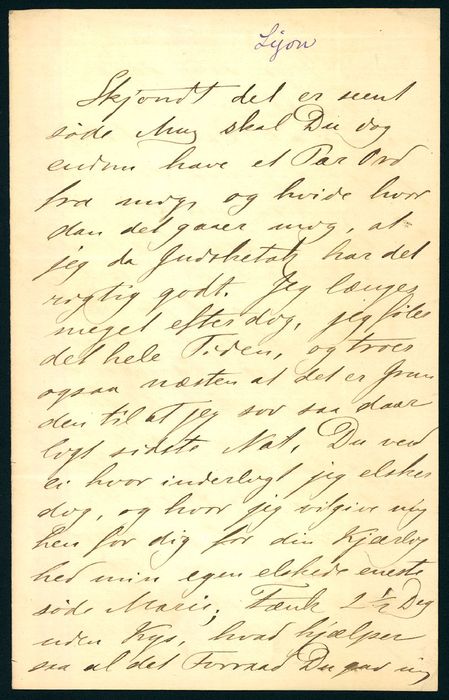 Lyon
Skjøndt det er seent
søde Mus skal Du dog
endnu have et Par Ord
fra mig, og hvide hvor
dan det gaaer mig, at
jeg da Gudsketak har det
rigtig godt. Jeg længes
meget efter dig, jeg føler
det hele Tiden, og troer
ogsaa næsten at det er Grun
den til at jeg sov saa daar
ligt sidste Nat. Du veed
ei hvor inderligt jeg elsker
dig, og hvor jeg vilgive mig
hen for dig for din Kjærlig
hed min egen elskede eneste
søde Marie; Tænk 2 1/2 Dag
uden Kys, hvad hjælper
saa al det Forraad Du gav mig